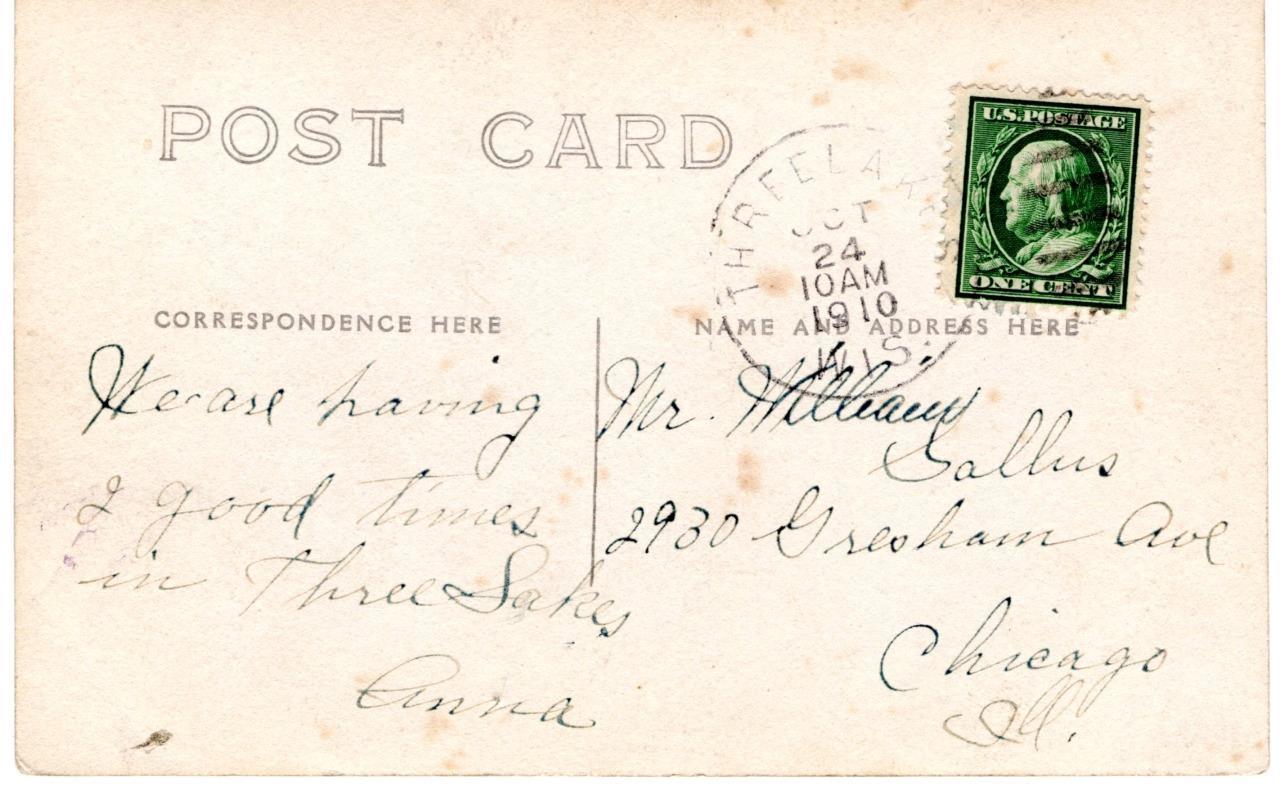 POST CARD
THREE LAKE
OCT
24
10AM
1910
WIS.
U.S. POSTAGE
ONE CENT
CORRESPONDENCE HERE
We are having
good times
in Three Lakes
Anna
NAME AND ADDRESS HERE
Mr. William
2930 Gresham Ave
Chicago
Ill.